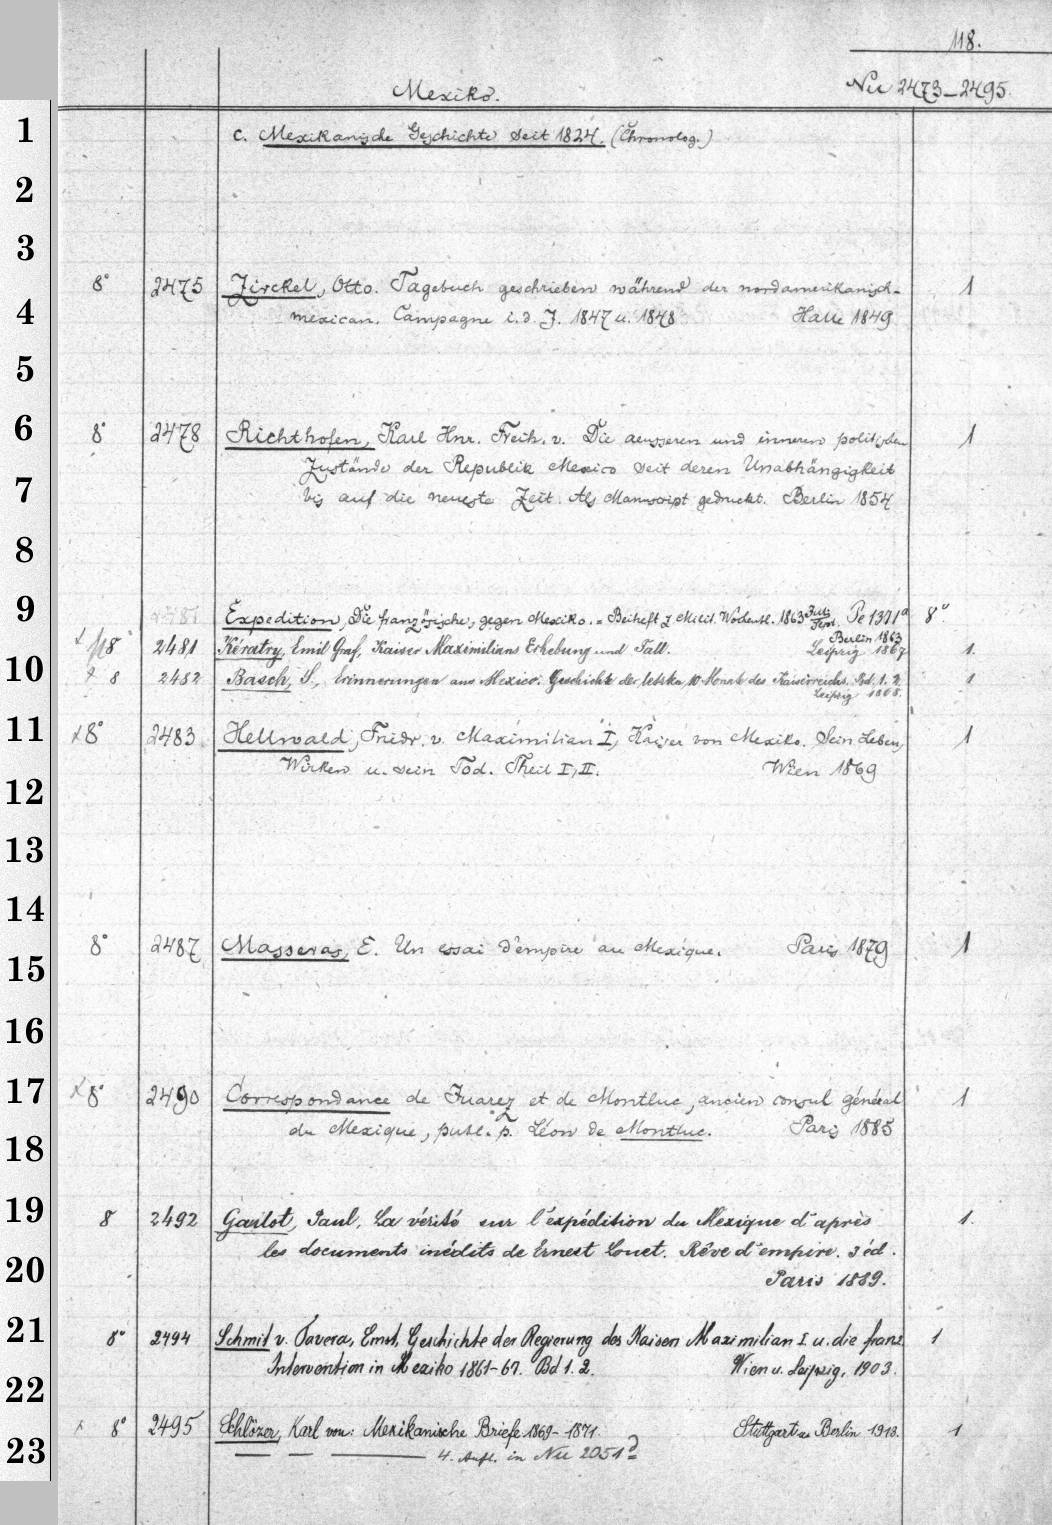 118.
Mexiko. Nu 2473-2495.
1 c. Mexikanische Geschichte seit 1824. (Chronolog.)
2
3
8° 2475 Zirckel, Otto. Tagebuch geschrieben während der nordamerikanisch- 1
4 mexican. Campagne i. d. J. 1847 u. 1848 Halle 1849
5
6 8° 2478 Richthofen, Karl Hnr. Freih. v. Die aeusseren und inneren politischen 1
Zustände der Republik Mexico seit deren Unabhängigkeit
7 bis auf die neueste Zeit. Als Manuscript gedruckt. Berlin 1854
8
9 2481 Expedition, Die französische, gegen Mexiko. = Beiheft z Milit. Wochenbl. 1863 Pe 1371a 8°
Berlin 1863
8° 2481 Kératry, Emil Graf, Kaiser Maximilians Erhebung und Fall. Leipzig 1867 1.
10 8 2482 Basch, S., Erinnerungen aus Mexico. Geschichte der letzten 10 Monate des Kaiserreichs. Bd. 1. 2. 1
Leipzig 1868.
11 x8° 2483 Hellwald, Friedr. v. Maximilian I, Kaiser von Mexiko. Sein Leben, 1
Wirken u. sein Tod. Theil I, II. Wien 1869
12
13
14
15 8° 2487 Masseras, E. Un essai d'empire au Mexique. Paris 1879 1
16
17 x8° 2490 Correspondance de Juarez et de Montluc, ancien consul général 1
18 du Mexique, publ. p. Léon de Montluc. Paris 1885
19 8 2492 Gaulot, Paul, La vérité sur l'expédition du Mexique d'après 1.
les documents inédits de Ernest Louet. Rêve d'empire. 3 éd.
20 Paris 1889.
21 8° 2494 Schmit v. Tavera, Ernst, Geschichte der Regierung des Kaisers Maximilian I u. die franz. 1
Intervention in Mexiko 1861-67. Bd 1. 2. Wien u. Leipzig, 1903.
22
x 8° 2495 Schlözer, Karl von: Mexikanische Briefe 1869-1871. Stuttgart u. Berlin 1913. 1
23 — — — 4. Aufl. in Nu 2051?